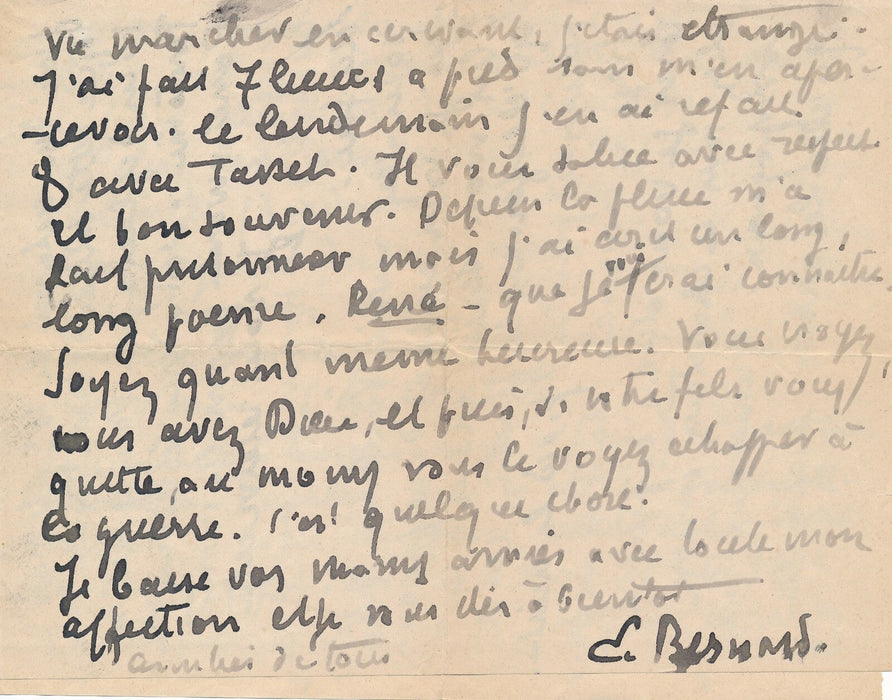 vu marcher en écrivant, j'étais étrange.
J'ai fait 7 lieues à pied sans m'en aper-
-cevoir. Le lendemain j'en ai refait
8 avec Tasset. Il vous salue avec respect
et bon souvenir. Depuis la pluie m'a
fait prisonnier mais j'ai écrit un long,
long poème. René – que je ferai connaître
Soyez quand même heureuse. Vous voyez
vous avez Dieu, et puis, si votre fils vous
quitte, au moins vous le voyez échapper à
la guerre. C'est quelque chose.
Je baise vos mains amies avec toute mon
affection et je vous dis à bientôt
E. Bernard.
amitiés de tous